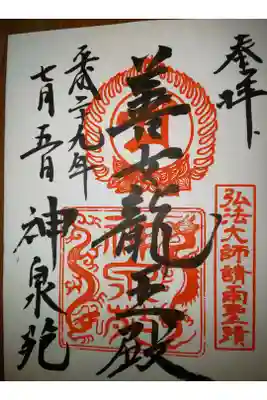 奉拝
弘法大師請雨霊蹟
善女龍王殿
平成二十九年
七月五日
神泉苑